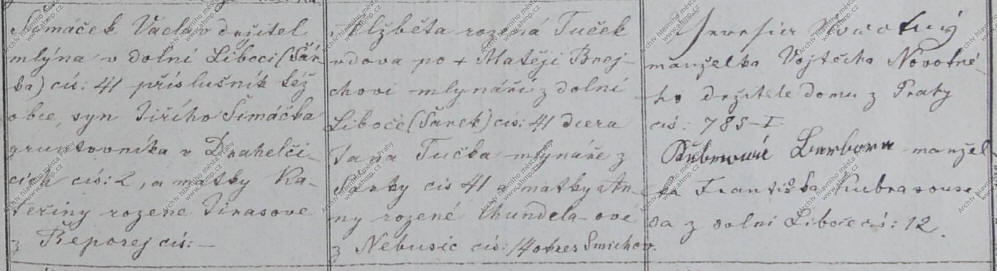 Šimáček Václav držitel
mlýna v dolní Liboci (Šár-
ka) čís: 41 příslušník též
obce, syn Jiřího Šimáčka
gruntovníka v Drahelči-
cích čís: 2, a matky Ka-
teřiny rozené Jirasove
z Řeporej čís: –
Alžběta rozená Tuček
vdova po + Matěji Brej-
chovi mlynáři z dolní
Liboce (Šárek) čís: 41 dcera
Jana Tučka mlynáře z
Šárky čís 41 a matky An-
ny rozené Chundela-ove
z Nebušic čís: 14 okres Smichov.
Novotný
manželka Vojtěcha Novotné-
ho držitele domu z Prahy
čís: 785-I
Barbora manžel-
ka Františka
z dolní Liboce čís: 12.